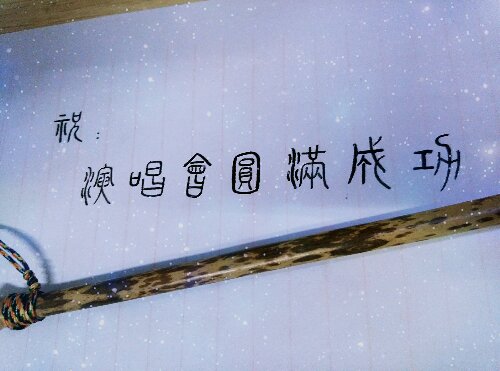 祝：
演唱會圓滿成功